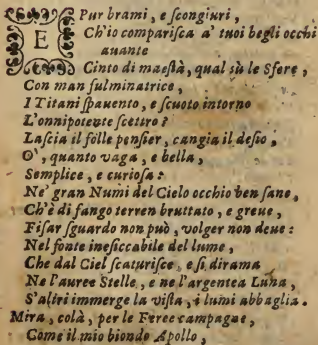 E Pur brami, e ſcongiuri,
Ch'io compariſca a' tuoi begli occhi
auante
Cinto di maeſtà, qual sù le Sfere,
Con man fulminatrice,
I Titani ſpauento, e ſcuoto intorno
L'onnipotente ſcettro?
Laſcia il folle penſier, cangia il deſio,
O', quanto vaga, e bella,
Semplice, e curioſa:
Ne' gran Numi del Cielo occhio ben ſano,
Ch'è di fango terren bruttato, e greue,
Fiſar ſguardo non può, volger non deue:
Nel fonte ineſiccabile del lume,
Che dal Ciel ſcaturiſce, e ſi dirama
Ne l'auree Stelle, e ne l'argentea Luna,
S'altri immerge la viſta, i lumi abbaglia.
Mira, colà, per le Feree campagne,
Come il mio biondo Apollo,